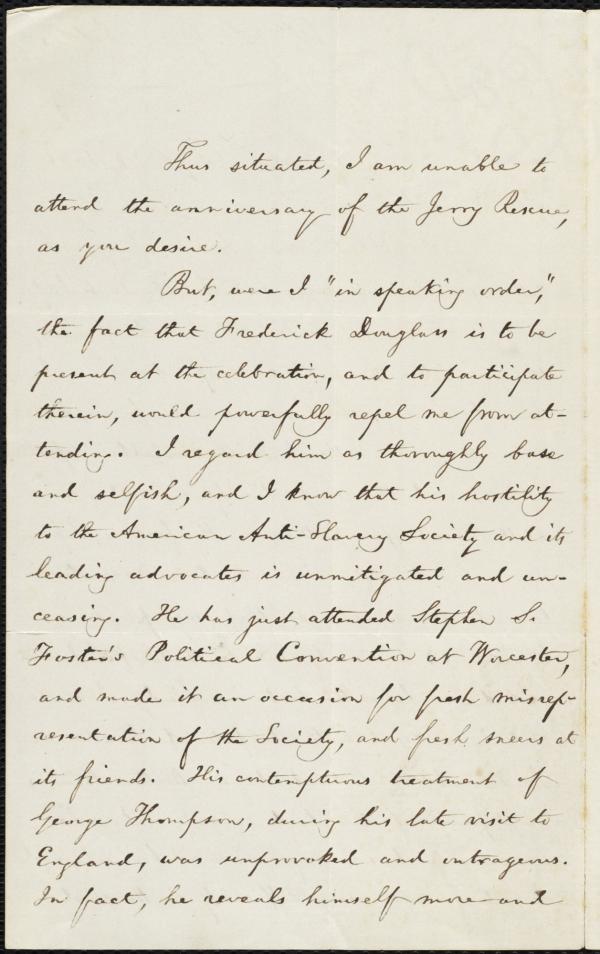 Thus situated, I am unable to
attend the anniversary of the Jerry Rescue,
as you desire.
But, were I "in speaking order,"
the fact that Frederick Douglass is to be
present at the celebration, and to participate
therein, would powerfully repel me from at-
tending. I regard him as thoroughly base
and selfish, and I know that his hostility
to the American Anti-Slavery Society and its
leading advocates is unmitigated and un-
ceasing. He has just attended Stephen S.
Foster's Political Convention at Worcester,
and made it an occasion for fresh misrep-
resentation of the Society, and fresh sneers at
its friends. His contemptuous treatment of
George Thompson, during his late visit to
England, was unprovoked and outrageous.
In fact, he reveals himself more and